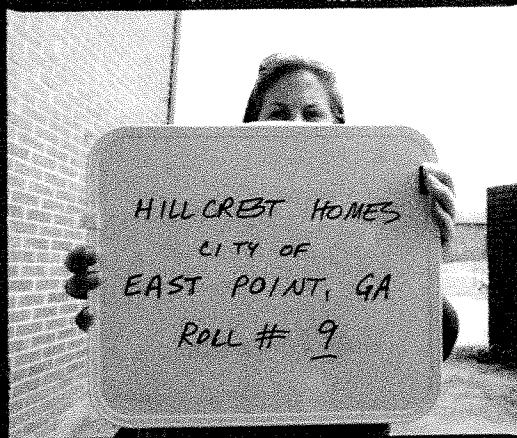 HILLCREST HOMES
CITY OF
EAST POINT, GA
ROLL # 9